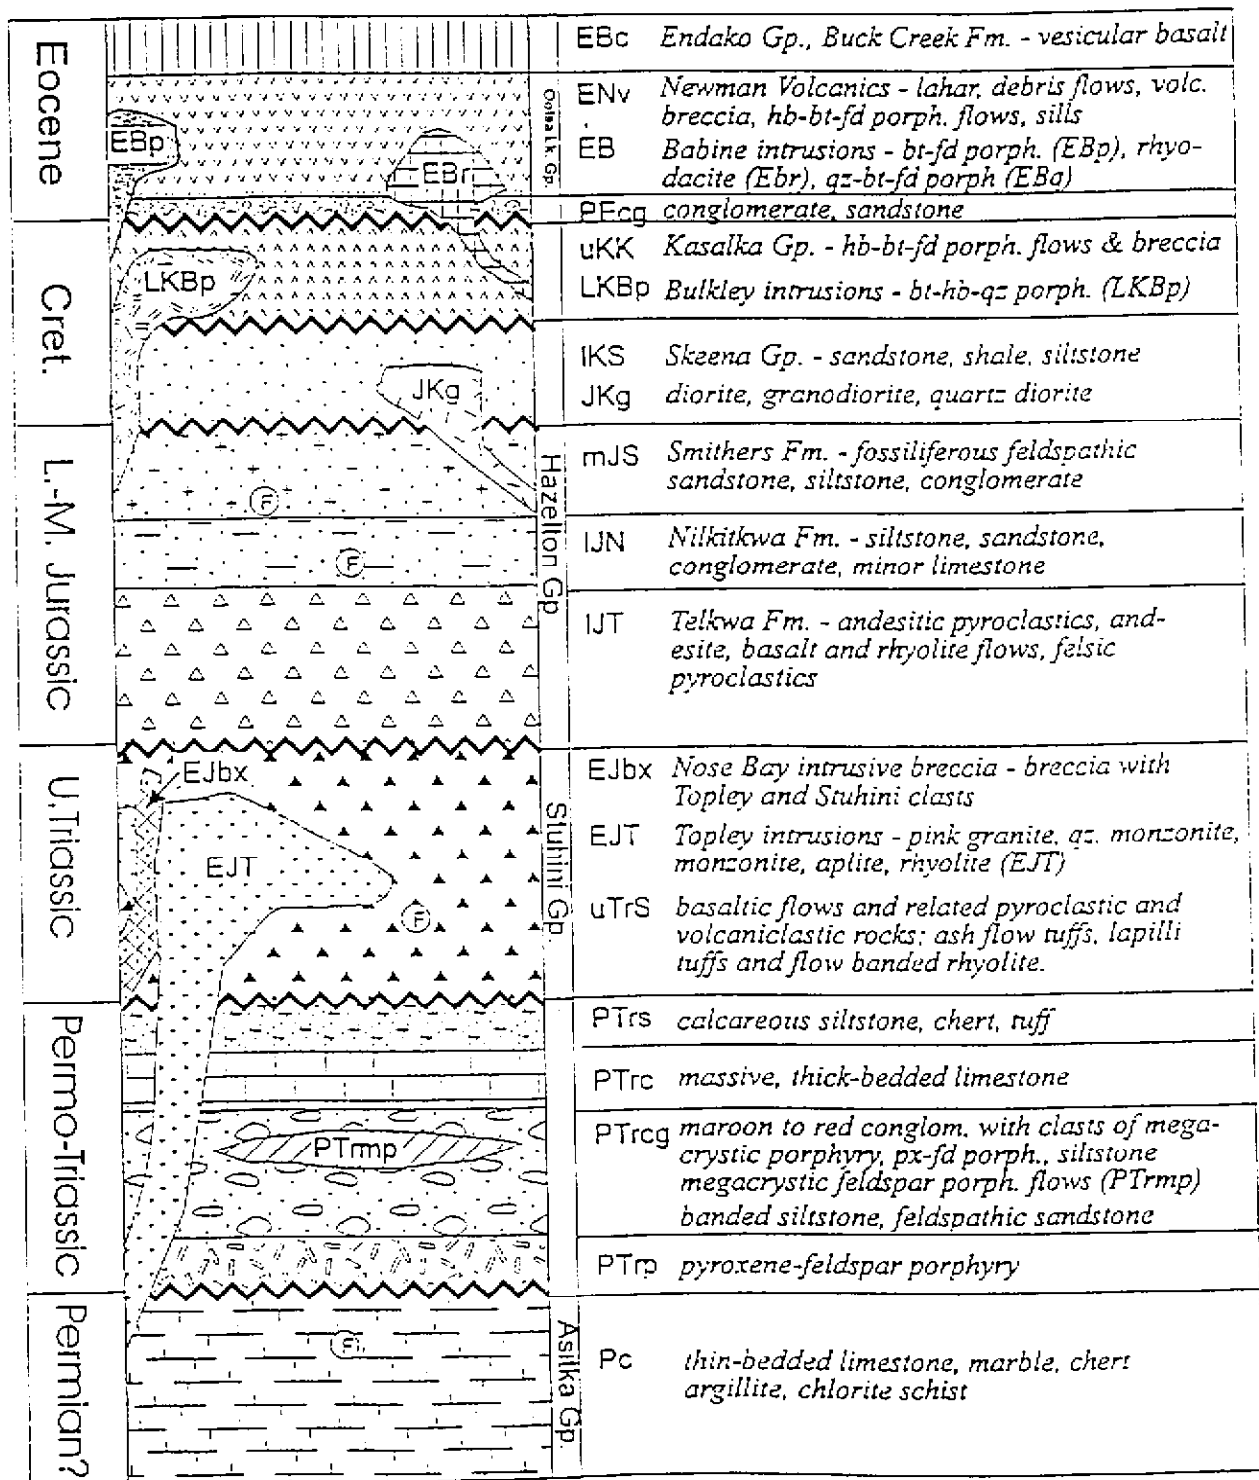 Eocene
Cret.
L.-M. Jurassic
U.Triassic
Permo-Triassic
Permian?
EBp
EBr
LKBp
JKg
F
F
EJbx
EJT
F
PTrmp
F
Gp.
Hazelton Gp.
Stuhini Gp.
Asitka Gp.
EBc Endako Gp., Buck Creek Fm. - vesicular basalt
ENv Newman Volcanics - lahar, debris flows, volc.
breccia, hb-bt-fd porph. flows, sills
EB Babine intrusions - bt-fd porph. (EBp), rhyo-
dacite (Ebr), qz-bt-fd porph (EBq)
PEcg conglomerate, sandstone
uKK Kasalka Gp. - hb-bt-fd porph. flows & breccia
LKBp Bulkley intrusions - bt-hb-qz porph. (LKBp)
lKS Skeena Gp. - sandstone, shale, siltstone
JKg diorite, granodiorite, quartz diorite
mJS Smithers Fm. - fossiliferous feldspathic
sandstone, siltstone, conglomerate
lJN Nilkitkwa Fm. - siltstone, sandstone,
conglomerate, minor limestone
lJT Telkwa Fm. - andesitic pyroclastics, and-
esite, basalt and rhyolite flows, felsic
pyroclastics
EJbx Nose Bay intrusive breccia - breccia with
Topley and Stuhini clasts
EJT Topley intrusions - pink granite, qz. monzonite,
monzonite, aplite, rhyolite (EJT)
uTrS basaltic flows and related pyroclastic and
volcaniclastic rocks; ash flow tuffs, lapilli
tuffs and flow banded rhyolite.
PTrs calcareous siltstone, chert, tuff
PTrc massive, thick-bedded limestone
PTrcg maroon to red conglom. with clasts of mega-
crystic porphyry, px-fd porph., siltstone
megacrystic feldspar porph. flows (PTrmp)
banded siltstone, feldspathic sandstone
PTrp pyroxene-feldspar porphyry
Pc thin-bedded limestone, marble, chert
argillite, chlorite schist